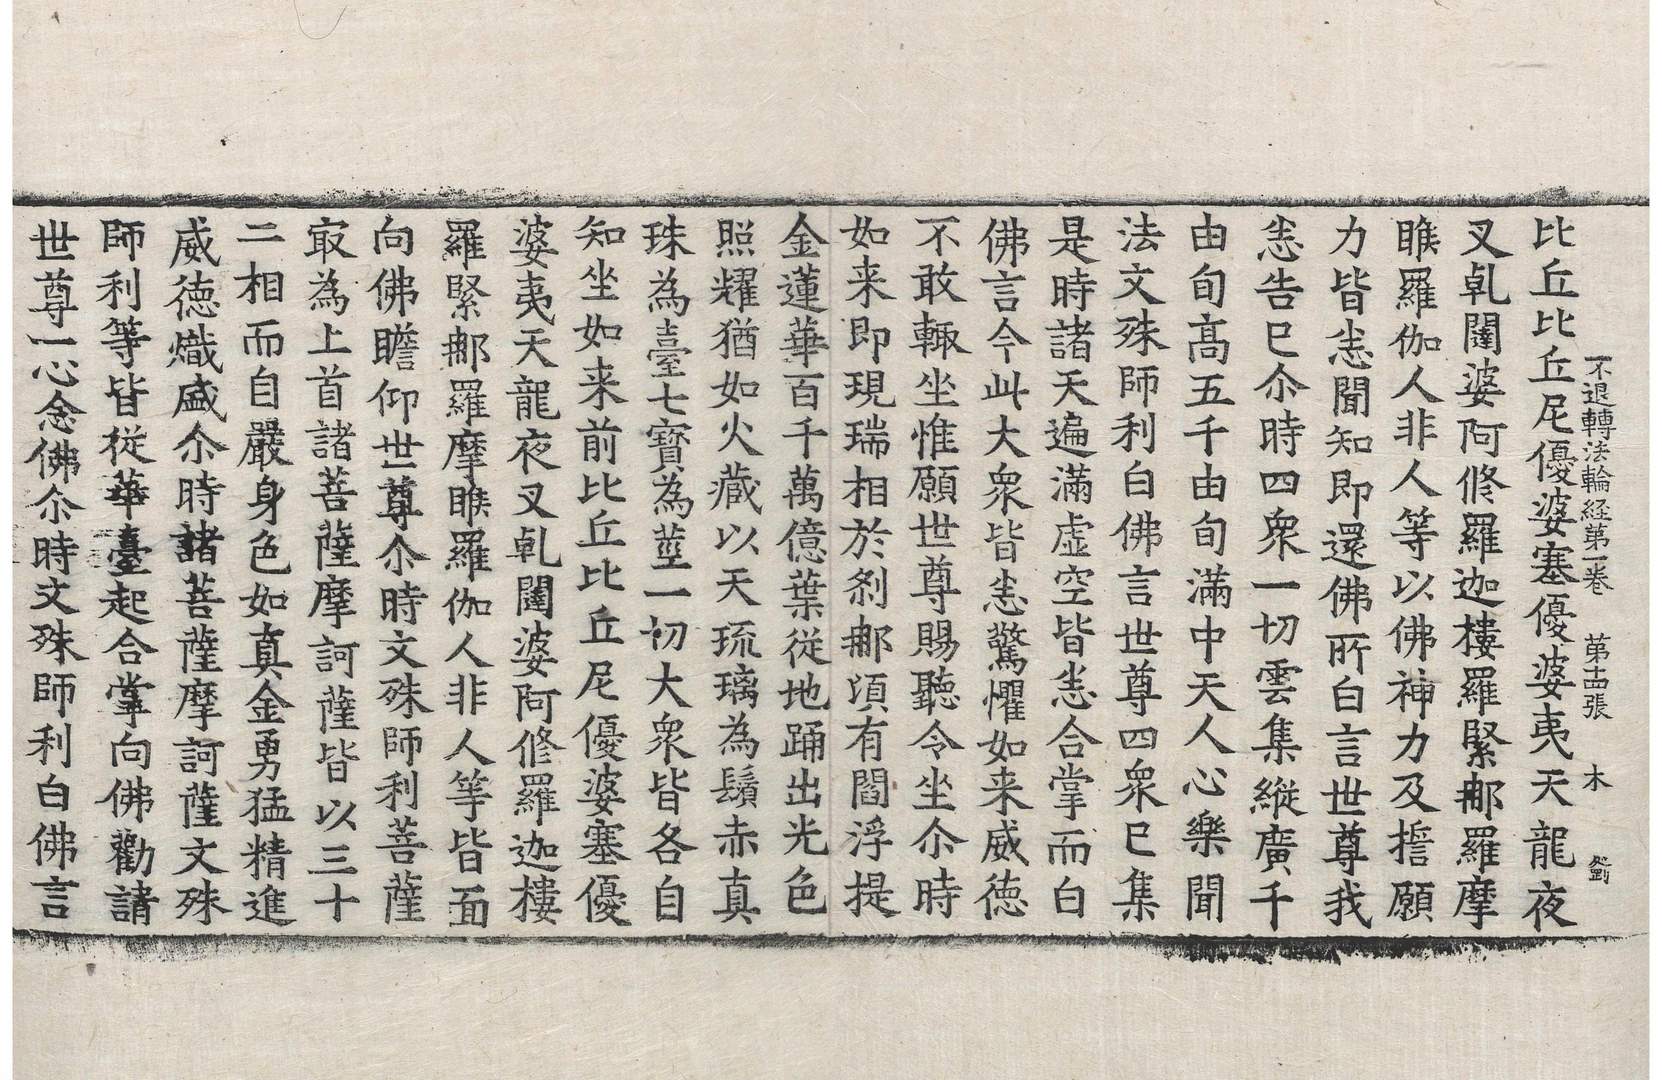 不退轉法輪経第一卷 第十四張 木 劉
比丘比丘尼優婆塞優婆夷天龍夜
叉乹闥婆阿脩羅迦樓羅緊那羅摩
睺羅伽人非人等以佛神力及擔願
力皆悉聞知即還佛所白言世尊我
悉告已尒時四衆一切雲集縱廣千
由旬髙五千由旬滿中天人心樂聞
法文殊師利白佛言世尊四衆已集
是時諸天遍滿虛空皆悉合掌而白
佛言今此大衆皆悉驚懼如来威德
不敢輙坐惟願世尊賜聽令坐尒時
如来即現瑞相於剎那頃有閻浮提
金蓮華百千萬億葉從地踊出光色
照耀猶如火藏以天琉璃為鬚赤真
珠為臺七寳為莖一切大衆皆各自
知坐如来前比丘比丘尼優婆塞優
婆夷天龍夜叉乹闥婆阿脩羅迦樓
羅緊那羅摩睺羅伽人非人等皆面
向佛瞻仰世尊尒時文殊師利菩薩
㝡為上首諸菩薩摩訶薩皆以三十
二相而自嚴身色如真金勇猛精進
威德熾盛尒時諸菩薩摩訶薩文殊
師利等皆從華臺起合掌向佛勸請
世尊一心念佛尒時文殊師利白佛言